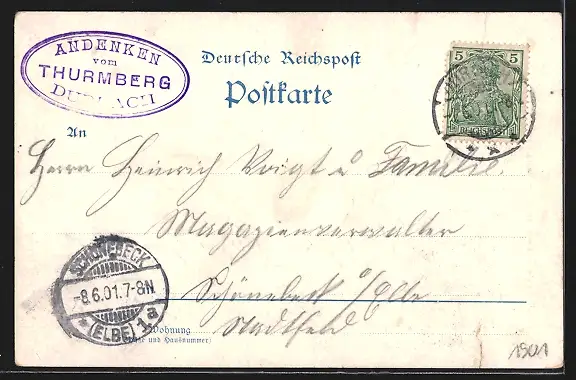 ANDENKEN
vom
THURMBERG
DURLACH
Deutsche Reichspost
Postkarte
5 5
REICHSPOST
An
Herrn Heinrich Voigt u Familie.
Magazienverwalter
Schönebeck a/Elbe
Stadtfeld
SCHÖNEBECK
-8.6.01.7-8N
(ELBE) 1a
Wohnung
(Straße und Hausnummer)
1901